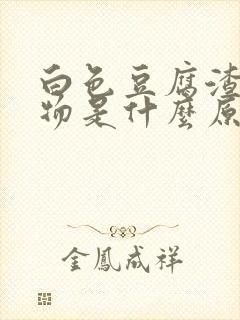 白色豆腐渣
物是什麼原
金鳳成祥